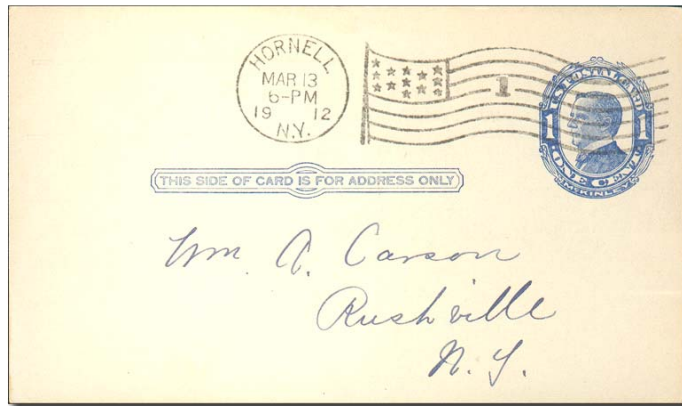 HORNELL
MAR 13
6-PM
19 12
N.Y.
1
U.S. POSTAL CARD
1 1
ONE CENT
McKINLEY
THIS SIDE OF CARD IS FOR ADDRESS ONLY
Wm. A. Carson
Rushville
N. Y.